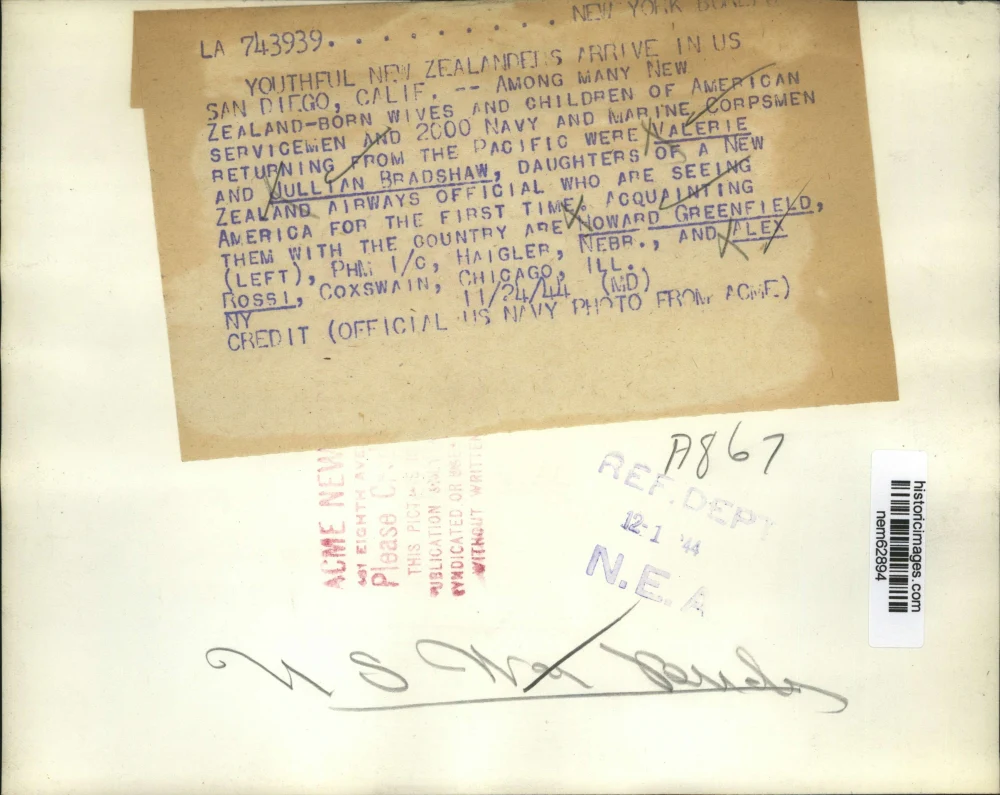 NEW YORK BUREAU
LA 743939. . . . . . . . . .
YOUTHFUL NEW ZEALANDERS ARRIVE IN US
SAN DIEGO, CALIF. -- AMONG MANY NEW
ZEALAND-BORN WIVES AND CHILDREN OF AMERICAN
SERVICEMEN AND 2000 NAVY AND MARINE CORPSMEN
RETURNING FROM THE PACIFIC WERE VALERIE
AND JULLIAN BRADSHAW, DAUGHTERS OF A NEW
ZEALAND AIRWAYS OFFICIAL WHO ARE SEEING
AMERICA FOR THE FIRST TIME. ACQUAINTING
THEM WITH THE COUNTRY ARE HOWARD GREENFIELD,
(LEFT), PHM 1/C, HAIGLER, NEBR., AND ALEX
ROSSI, COXSWAIN, CHICAGO, ILL.
NY 11/24/44 (MD)
CREDIT (OFFICIAL US NAVY PHOTO FROM ACME)
A867
REF. DEPT
12-1 '44
N.E.A
ACME NEW
461 EIGHTH AVE
Please
THIS PICTURE
PUBLICATION ONLY
SYNDICATED, OR USED
WITHOUT WRITTEN
historicimages.com
nem62894
U S War